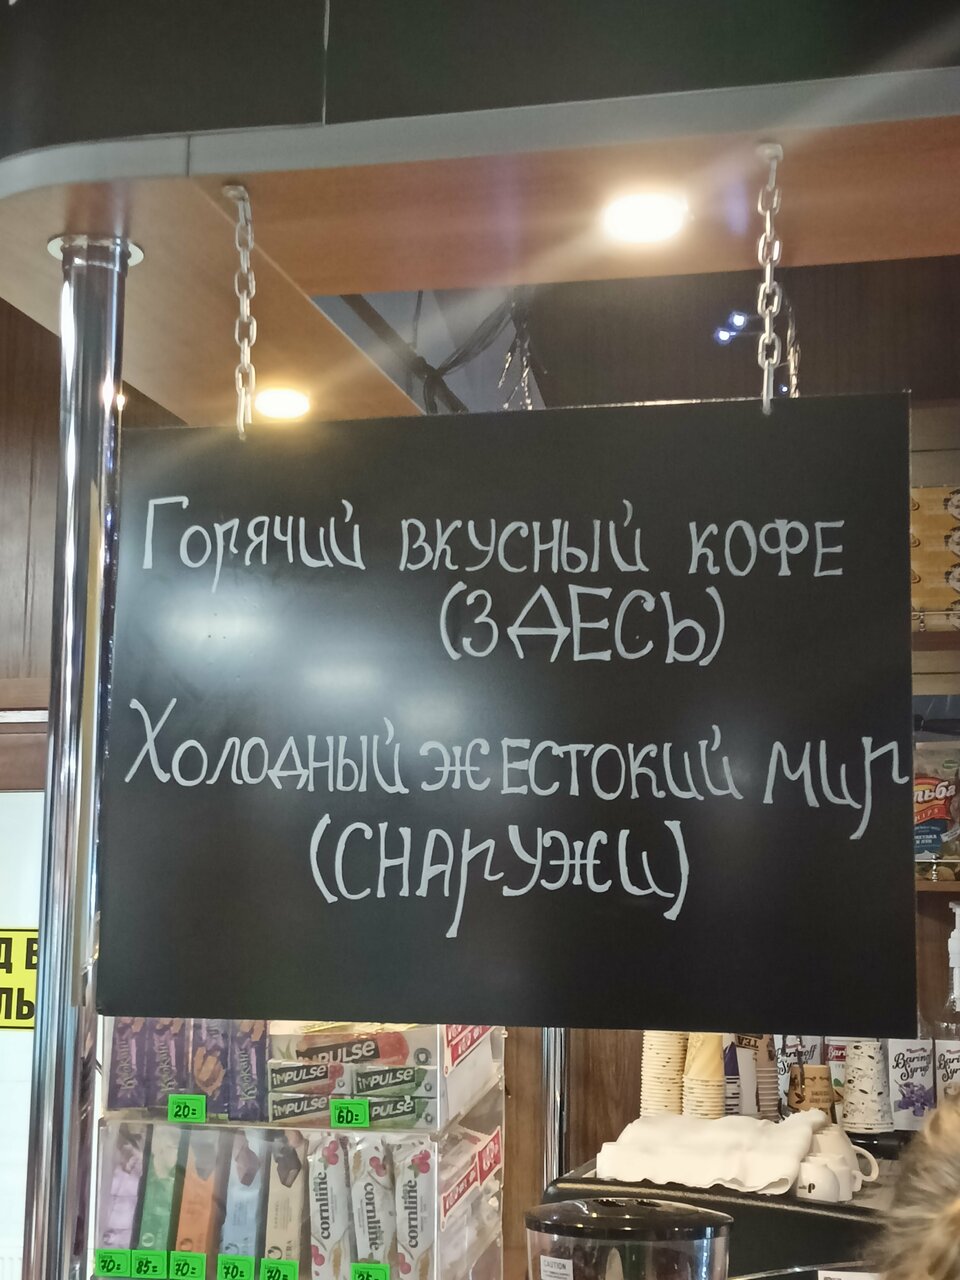 Горячий вкусный кофе
(ЗДЕСЬ)
Холодный жестокий мир
(снаружи)
льба
Д В
ЛЬ
IMPULSE
IMPULSE
IMPULSE
PULSE
IMPULSE
PULSE
20=
60=
TEA
Barinoff
Syrup
Barin
Syru
cornline
cornline
cornline
70=
85=
70=
70=
70=
CAUTION